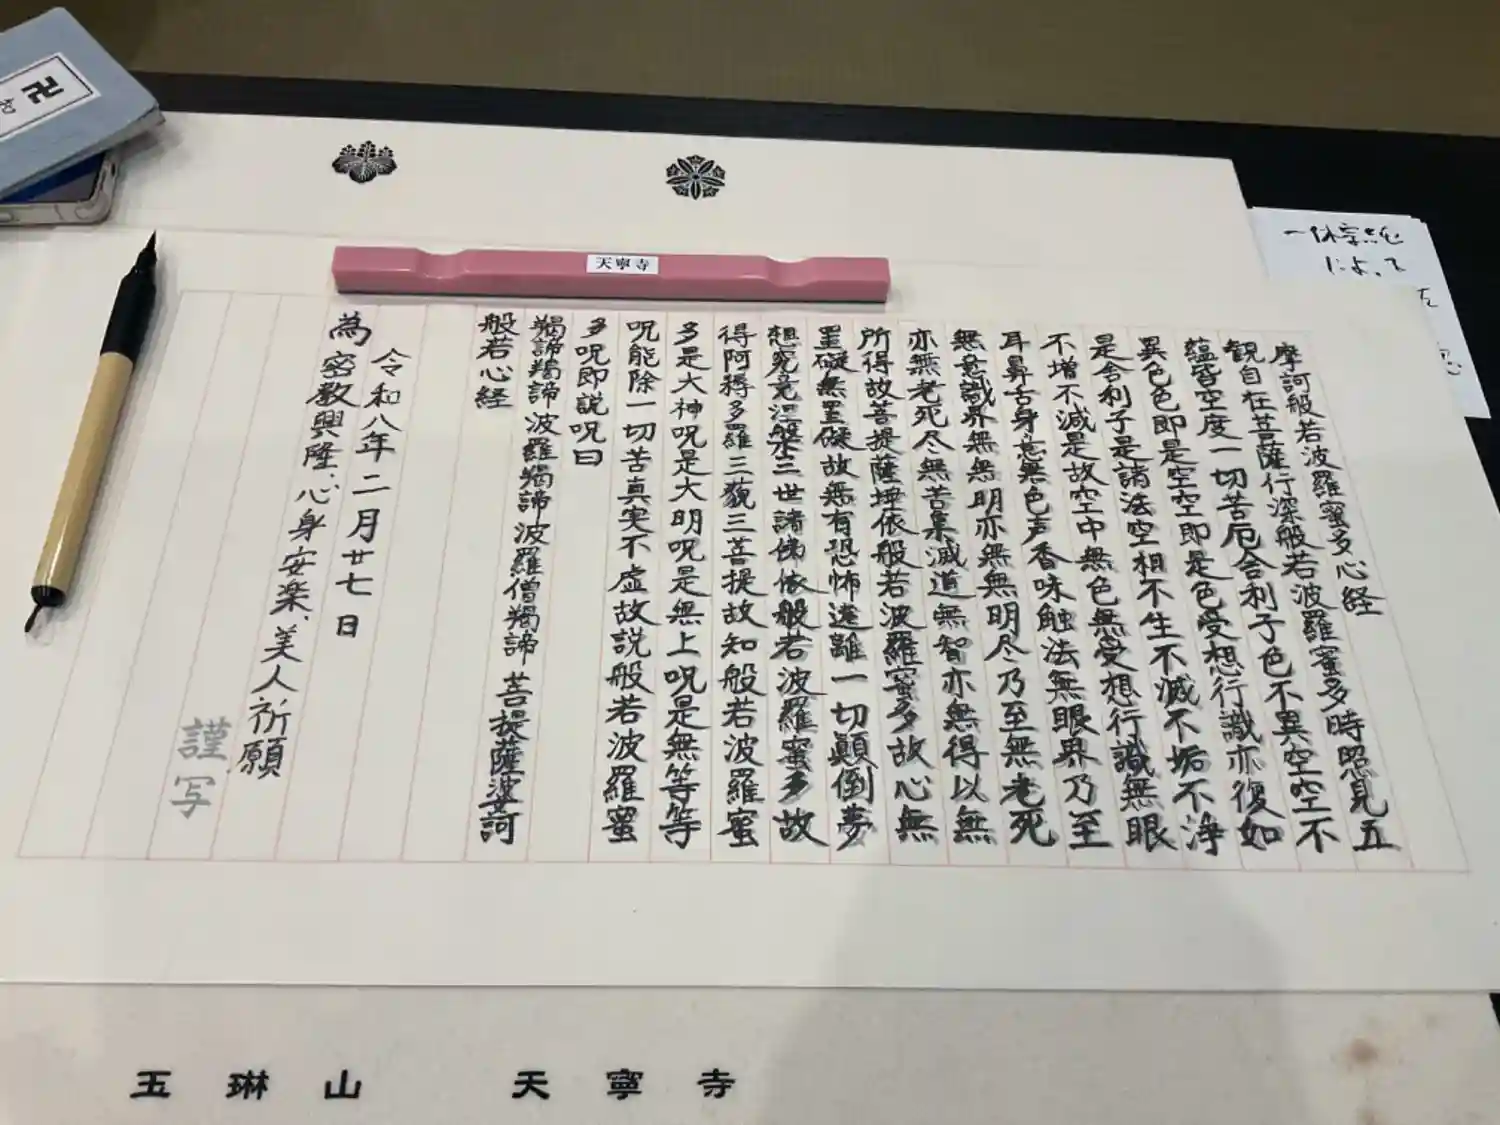 摩訶般若波羅蜜多心経
観自在菩薩行深般若波羅蜜多時照見五
蘊皆空度一切苦厄舎利子色不異空空不
異色色即是空空即是色受想行識亦復如
是舎利子是諸法空相不生不滅不垢不浄
不増不減是故空中無色無受想行識無眼
耳鼻舌身意無色声香味触法無眼界乃至
無意識界無無明亦無無明尽乃至無老死
亦無老死尽無苦集滅道無智亦無得以無
所得故菩提薩埵依般若波羅蜜多故心無
罣礙無罣礙故無有恐怖遠離一切顛倒夢
想究竟涅槃三世諸佛依般若波羅蜜多故
得阿耨多羅三藐三菩提故知般若波羅蜜
多是大神呪是大明呪是無上呪是無等等
呪能除一切苦真実不虚故説般若波羅蜜
多呪即説呪曰
羯諦羯諦波羅羯諦波羅僧羯諦菩提薩婆訶
般若心経
令和八年二月廿七日
為密教興隆、心身安楽、美人祈願
謹写
天寧寺
玉琳山 天寧寺
卍
一休宗純
によって